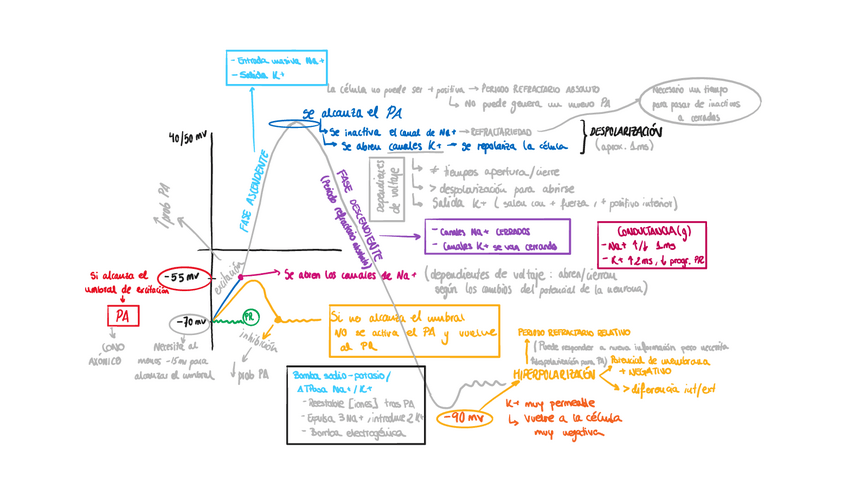 - Entrada masiva Na+
- Salida K+
La célula no puede ser + positiva → PERIODO REFRACTARIO ABSOLUTO
↳ No puede genera un nuevo PA
Necesario un tiempo
para pasar de inactivos
a cerrados
se alcanza el PA
↳ Se inactiva el canal de Na+ → REFRACTARIEDAD
↳ Se abren canales K+ → se repolariza la célula
DESPOLARIZACIÓN
(aprox. 1ms)
40/50 mv
FASE ASCENDENTE
↑ prob PA
Dependientes
de voltaje
↳ ≠ tiempos apertura/cierre
↳ > despolarización para abrirse
↳ Salida K+ ( salen con + fuerza, + positivo interior)
FASE DESCENDIENTE
(Periodo refractario absoluto)
- Canales Na+ CERRADOS
- Canales K+ se van cerrando
CONDUCTANCIA (g)
- Na+ ↑/↓ 1ms
- K+ ↑2ms, ↓ progr. PR
Si alcanza el
umbral de excitación
PA
CONO
AXÓNICO
-55mv
excitación
Se abren los canales de Na+ (dependientes de voltaje : abren/cierran
según los cambios del potencial de la neurona)
-70mv
Necesita al
menos -15mv para
alcanzar el umbral
PR
inhibición
↓ prob PA
Si no alcanza el umbral
NO se activa el PA y vuelve
al PR
Bomba sodio-potasio/
ATPasa Na+/K+
- Reestable [iones] tras PA
- Expulsa 3 Na+ , introduce 2 K+
- Bomba electrogénica
PERIODO REFRACTARIO RELATIVO
(Puede responder a nueva información pero necesita
despolarización para PA)
HIPERPOLARIZACIÓN
Potencial de membrana
+ NEGATIVO
> diferencia int/ext
-90 mv
K+ muy permeable
↳ vuelve a la célula
muy negativa